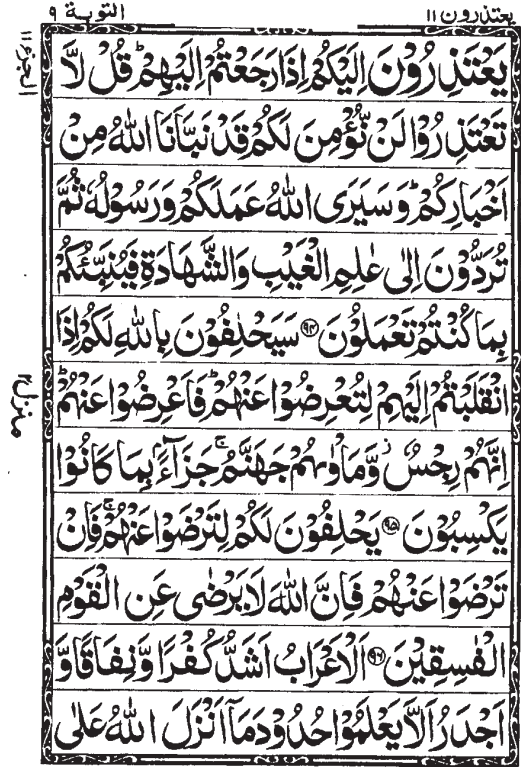 يعتذرون ١١
التوبة ٩
يَعْتَذِرُوْنَ اِلَيْكُمْ اِذَا رَجَعْتُمْ اِلَيْهِمْ ؕ قُلْ لَّا
تَعْتَذِرُوْا لَنْ نُّؤْمِنَ لَكُمْ قَدْ نَبَّاَنَا اللّٰهُ مِنْ
اَخْبَارِكُمْ ؕ وَسَيَرَى اللّٰهُ عَمَلَكُمْ وَرَسُوْلُهٗ ثُمَّ
تُرَدُّوْنَ اِلٰى عٰلِمِ الْغَيْبِ وَالشَّهَادَةِ فَيُنَبِّئُكُمْ
بِمَا كُنْتُمْ تَعْمَلُوْنَ ﴿۹۴﴾ سَيَحْلِفُوْنَ بِاللّٰهِ لَكُمْ اِذَا
انْقَلَبْتُمْ اِلَيْهِمْ لِتُعْرِضُوْا عَنْهُمْ ؕ فَاَعْرِضُوْا عَنْهُمْ ؕ
اِنَّهُمْ رِجْسٌ ؗ وَّمَاْوٰىهُمْ جَهَنَّمُ ۚ جَزَآءًۢ بِمَا كَانُوْا
يَكْسِبُوْنَ ﴿۹۵﴾ يَحْلِفُوْنَ لَكُمْ لِتَرْضَوْا عَنْهُمْ ۚ فَاِنْ
تَرْضَوْا عَنْهُمْ فَاِنَّ اللّٰهَ لَا يَرْضٰى عَنِ الْقَوْمِ
الْفٰسِقِيْنَ ﴿۹۶﴾ اَلْاَعْرَابُ اَشَدُّ كُفْرًا وَّنِفَاقًا وَّ
اَجْدَرُ اَلَّا يَعْلَمُوْا حُدُوْدَ مَاۤ اَنْزَلَ اللّٰهُ عَلٰى
الجزء ١١
منزل ٢